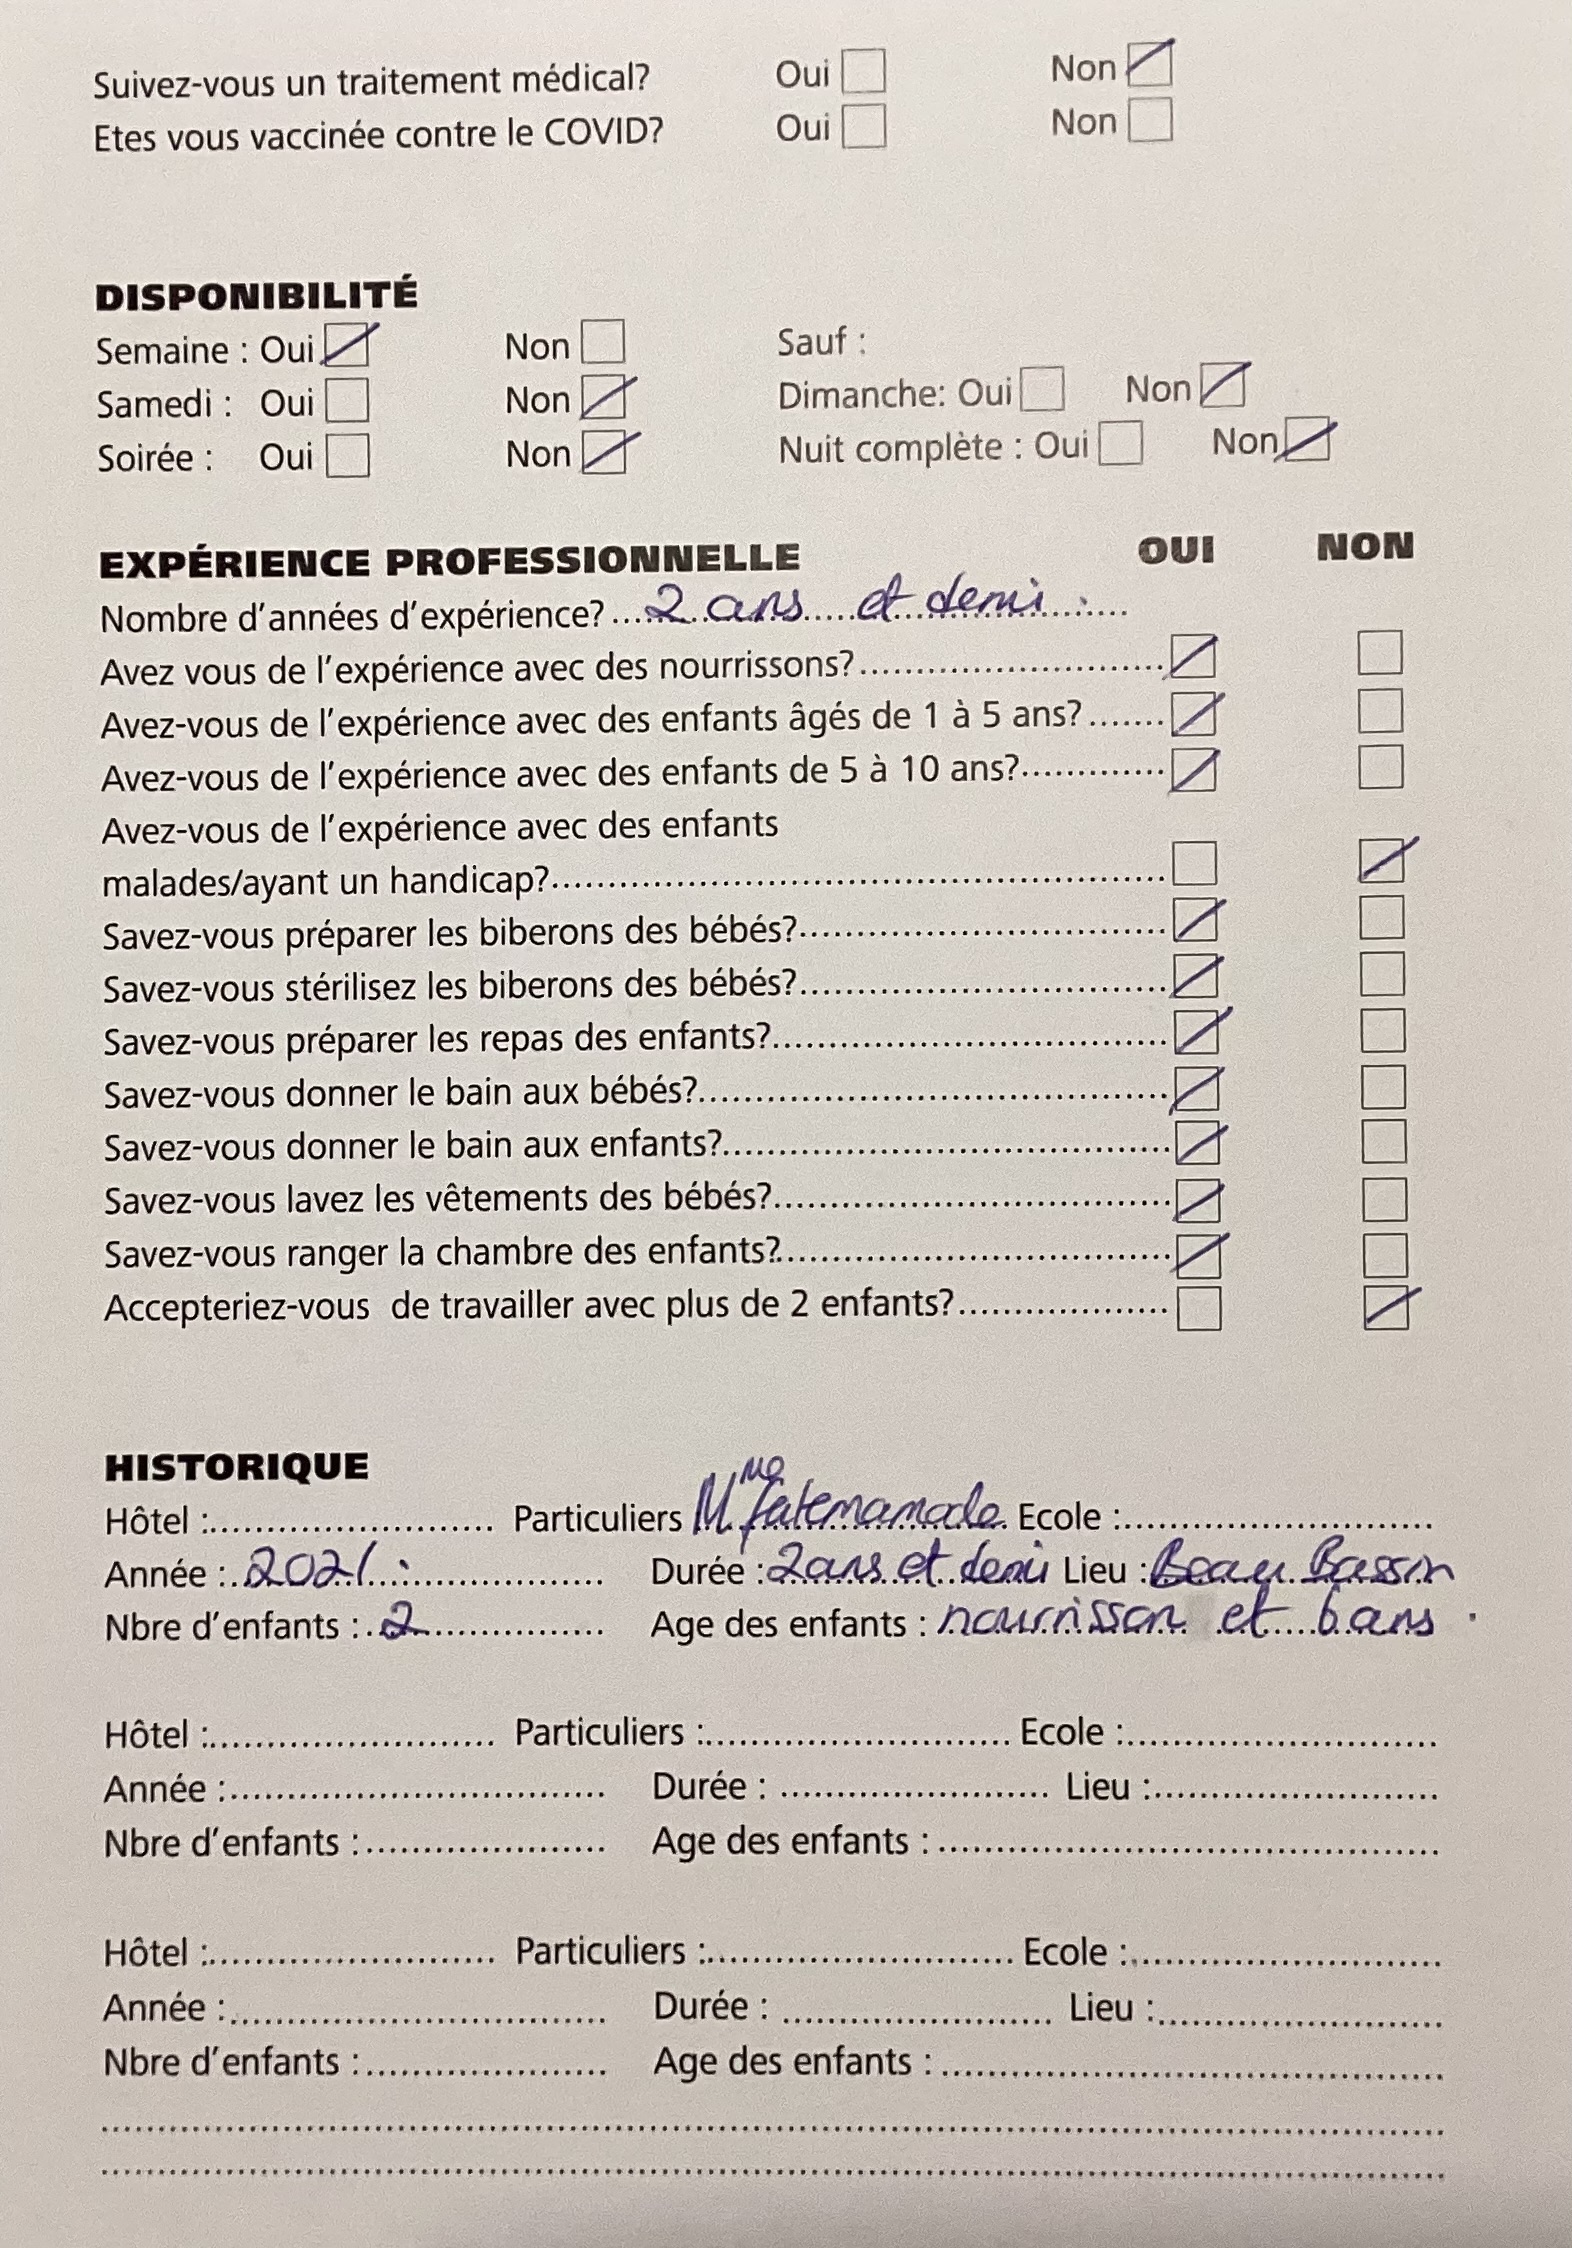 Suivez-vous un traitement médical? Oui ☐ Non ☑
Etes vous vaccinée contre le COVID? Oui ☐ Non ☐
DISPONIBILITÉ
Semaine : Oui ☑ Non ☐ Sauf :
Samedi : Oui ☐ Non ☑ Dimanche: Oui ☐ Non ☑
Soirée : Oui ☐ Non ☑ Nuit complète : Oui ☐ Non ☑
EXPÉRIENCE PROFESSIONNELLE OUI NON
Nombre d'années d'expérience? 2 ans et demi.
Avez vous de l'expérience avec des nourrissons? ☑ ☐
Avez-vous de l'expérience avec des enfants âgés de 1 à 5 ans? ☑ ☐
Avez-vous de l'expérience avec des enfants de 5 à 10 ans? ☑ ☐
Avez-vous de l'expérience avec des enfants
malades/ayant un handicap? ☐ ☑
Savez-vous préparer les biberons des bébés? ☑ ☐
Savez-vous stérilisez les biberons des bébés? ☑ ☐
Savez-vous préparer les repas des enfants? ☑ ☐
Savez-vous donner le bain aux bébés? ☑ ☐
Savez-vous donner le bain aux enfants? ☑ ☐
Savez-vous lavez les vêtements des bébés? ☑ ☐
Savez-vous ranger la chambre des enfants? ☑ ☐
Accepteriez-vous de travailler avec plus de 2 enfants? ☐ ☑
HISTORIQUE
Hôtel : Particuliers Mme Ecole :
Année : 2021. Durée : 2 ans et demi Lieu : Beau Bassin
Nbre d'enfants : 2 Age des enfants : nourrisson et 6 ans.
Hôtel : Particuliers : Ecole :
Année : Durée : Lieu :
Nbre d'enfants : Age des enfants :
Hôtel : Particuliers : Ecole :
Année : Durée : Lieu :
Nbre d'enfants : Age des enfants :